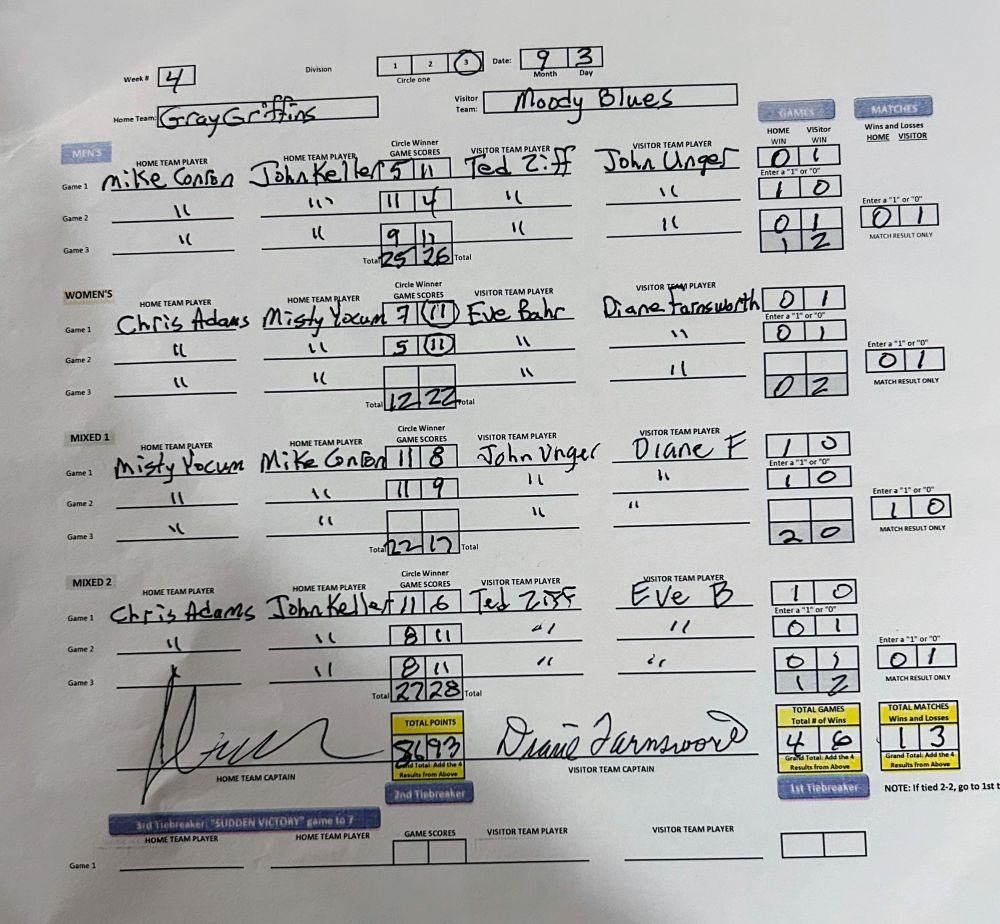 Week # 4 Division 1 2 3 Date: 9 3
Circle one Month Day
Home Team: Gray Griffins Visitor Team: Moody Blues
GAMES MATCHES
HOME WIN Visitor WIN Wins and Losses
HOME VISITOR
MEN'S HOME TEAM PLAYER HOME TEAM PLAYER Circle Winner GAME SCORES VISITOR TEAM PLAYER VISITOR TEAM PLAYER
Game 1 Mike Conron John Keller 5 11 Ted Ziff John Unger 0 1
Enter a "1" or "0"
Game 2 " " 11 4 " " 1 0
Enter a "1" or "0"
0 1
MATCH RESULT ONLY
Game 3 " " 9 11 " " 0 1
Total 25 26 Total 1 2
WOMEN'S HOME TEAM PLAYER HOME TEAM PLAYER Circle Winner GAME SCORES VISITOR TEAM PLAYER VISITOR TEAM PLAYER
Game 1 Chris Adams Misty Yocum 7 11 Eve Bahr Diane Farnsworth 0 1
Enter a "1" or "0"
Game 2 " " 5 11 " " 0 1
Enter a "1" or "0"
0 1
MATCH RESULT ONLY
Game 3 " " " "
Total 12 22 Total 0 2
MIXED 1 HOME TEAM PLAYER HOME TEAM PLAYER Circle Winner GAME SCORES VISITOR TEAM PLAYER VISITOR TEAM PLAYER
Game 1 Misty Yocum Mike Conron 11 8 John Unger Diane F 1 0
Enter a "1" or "0"
Game 2 " " 11 9 " " 1 0
Enter a "1" or "0"
1 0
MATCH RESULT ONLY
Game 3 " " " "
Total 22 17 Total 2 0
MIXED 2 HOME TEAM PLAYER HOME TEAM PLAYER Circle Winner GAME SCORES VISITOR TEAM PLAYER VISITOR TEAM PLAYER
Game 1 Chris Adams John Keller 11 6 Ted Ziff Eve B 1 0
Enter a "1" or "0"
Game 2 " " 8 11 " " 0 1
Enter a "1" or "0"
0 1
MATCH RESULT ONLY
Game 3 " " 8 11 " " 0 1
Total 27 28 Total 1 2
TOTAL POINTS TOTAL GAMES Total # of Wins TOTAL MATCHES Wins and Losses
86 93 Diane Farnsword 4 6 1 3
Grand Total: Add the 4 Results from Above Grand Total: Add the 4 Results from Above Grand Total: Add the 4 Results from Above
HOME TEAM CAPTAIN VISITOR TEAM CAPTAIN
2nd Tiebreaker 1st Tiebreaker NOTE: If tied 2-2, go to 1st t
3rd Tiebreaker: "SUDDEN VICTORY" game to 7
HOME TEAM PLAYER HOME TEAM PLAYER GAME SCORES VISITOR TEAM PLAYER VISITOR TEAM PLAYER
Game 1